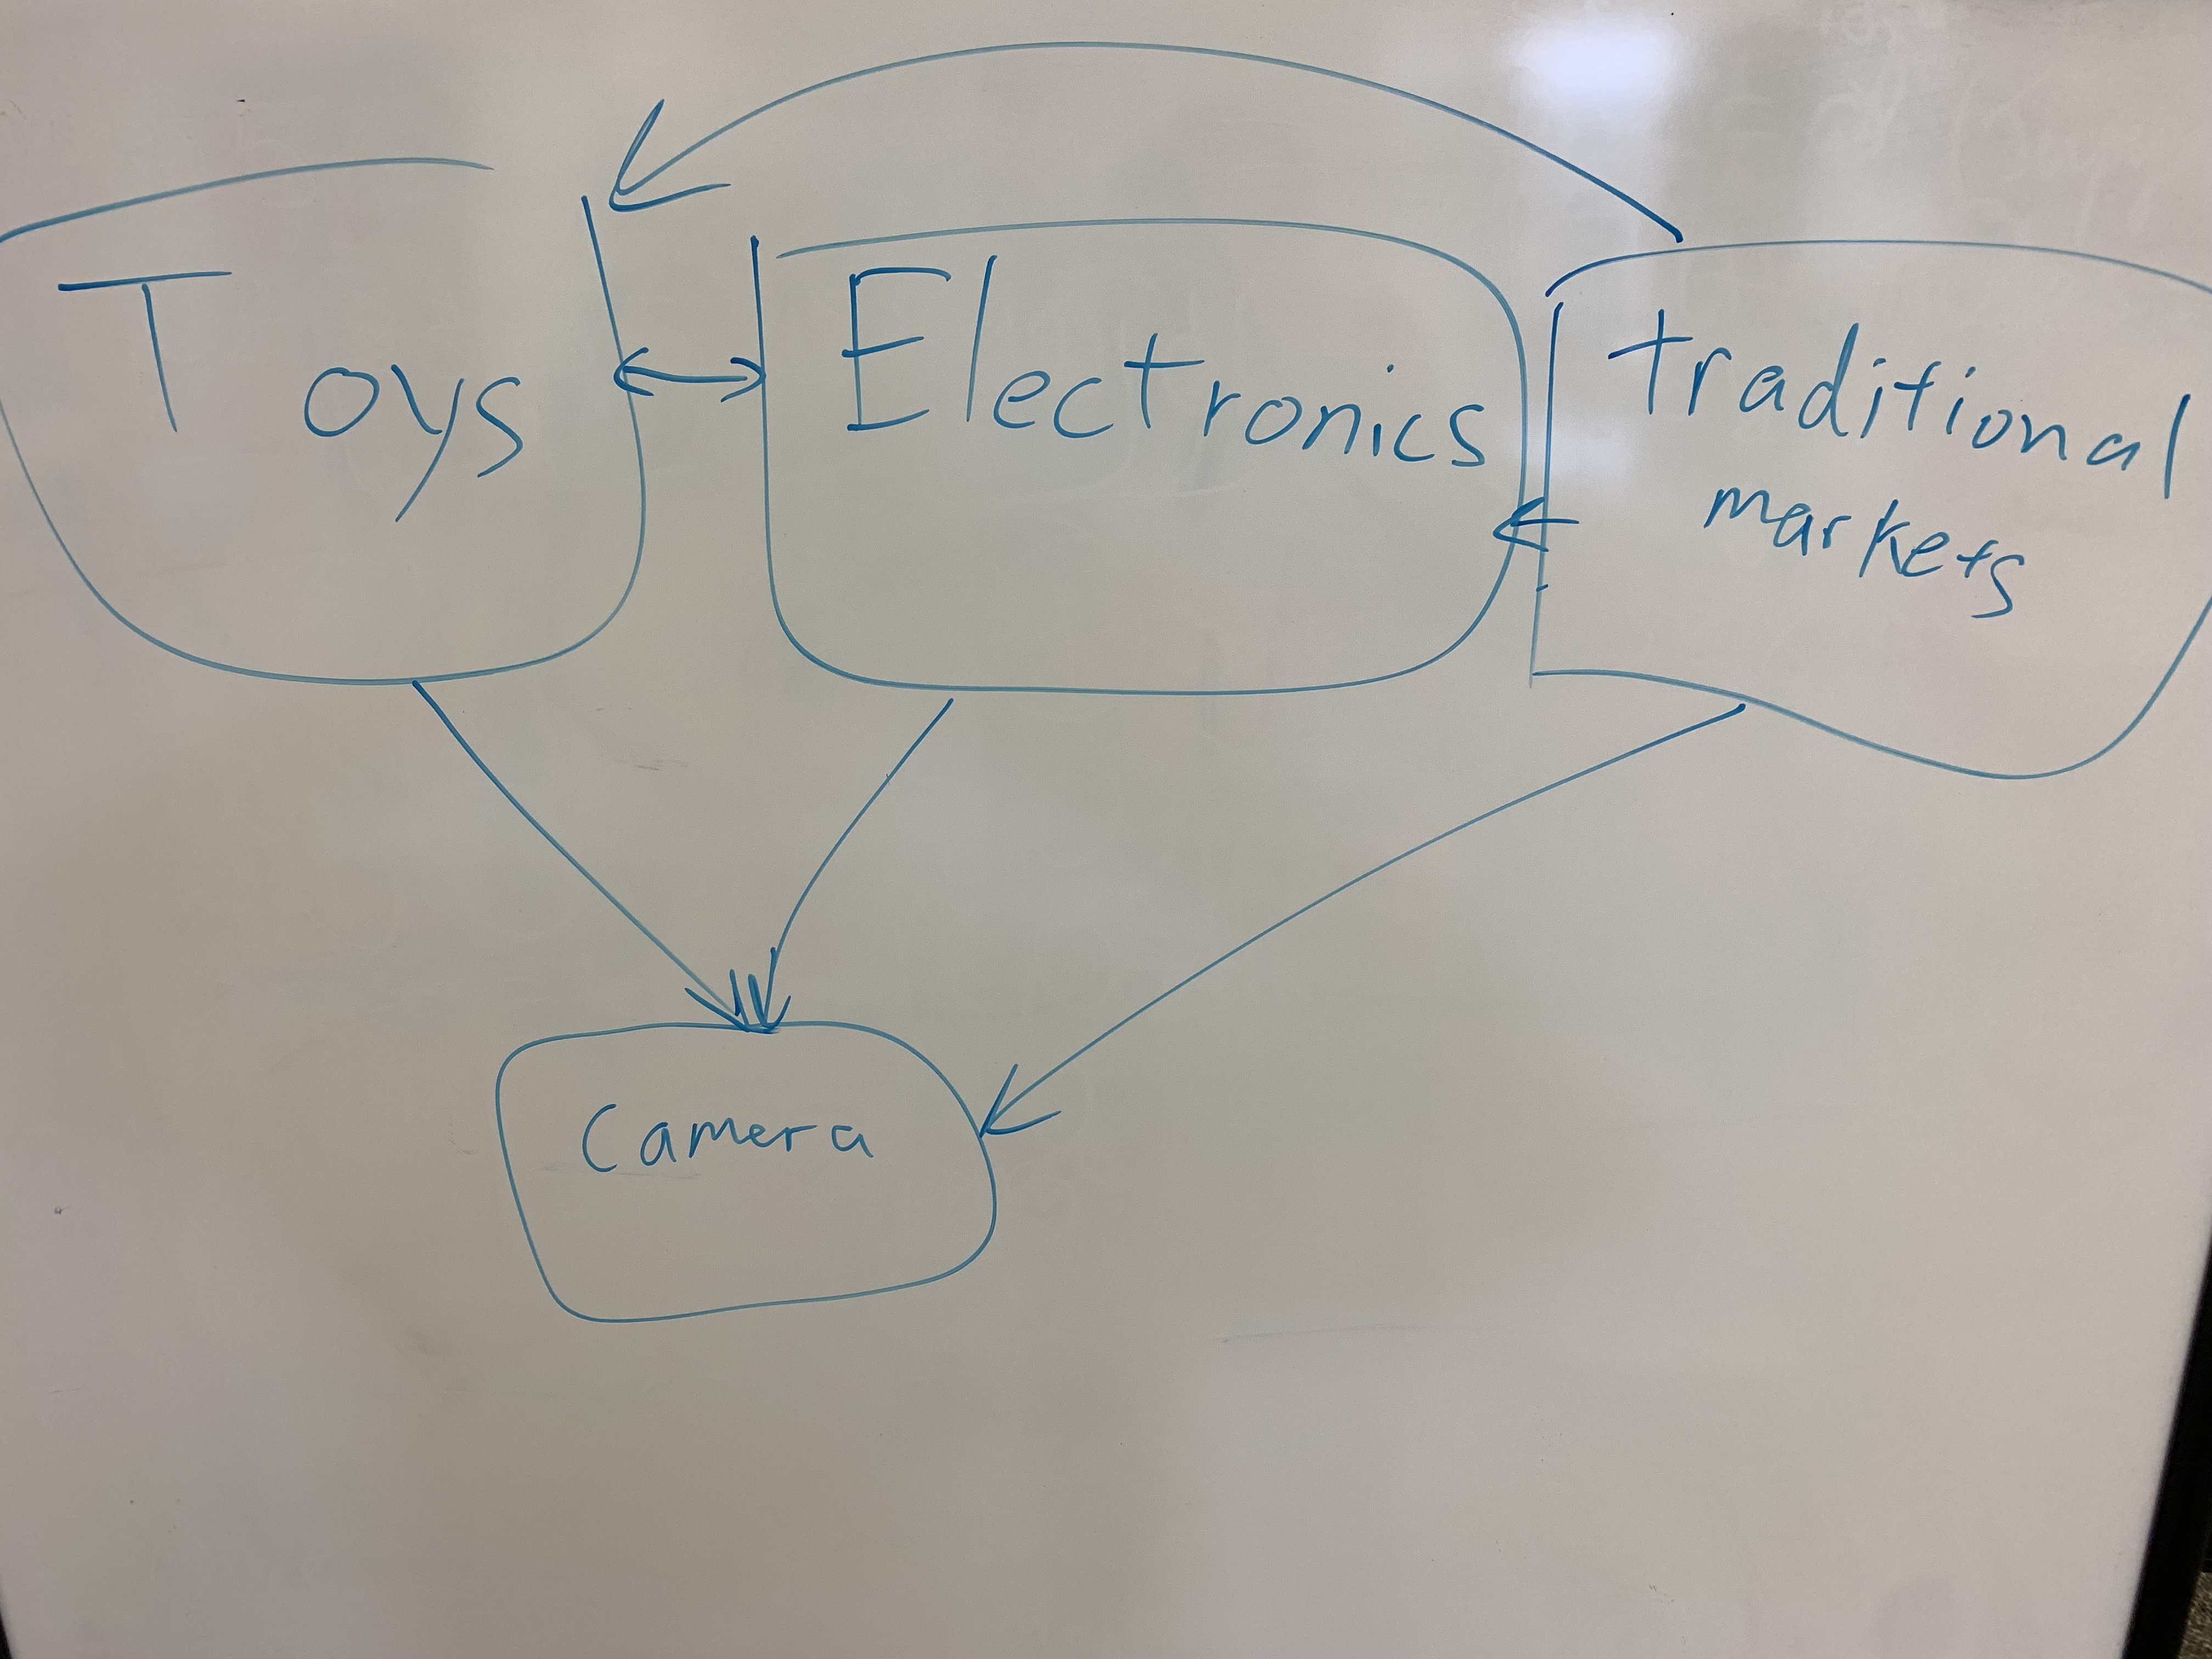 Toys
Electronics
traditional
markets
Camera